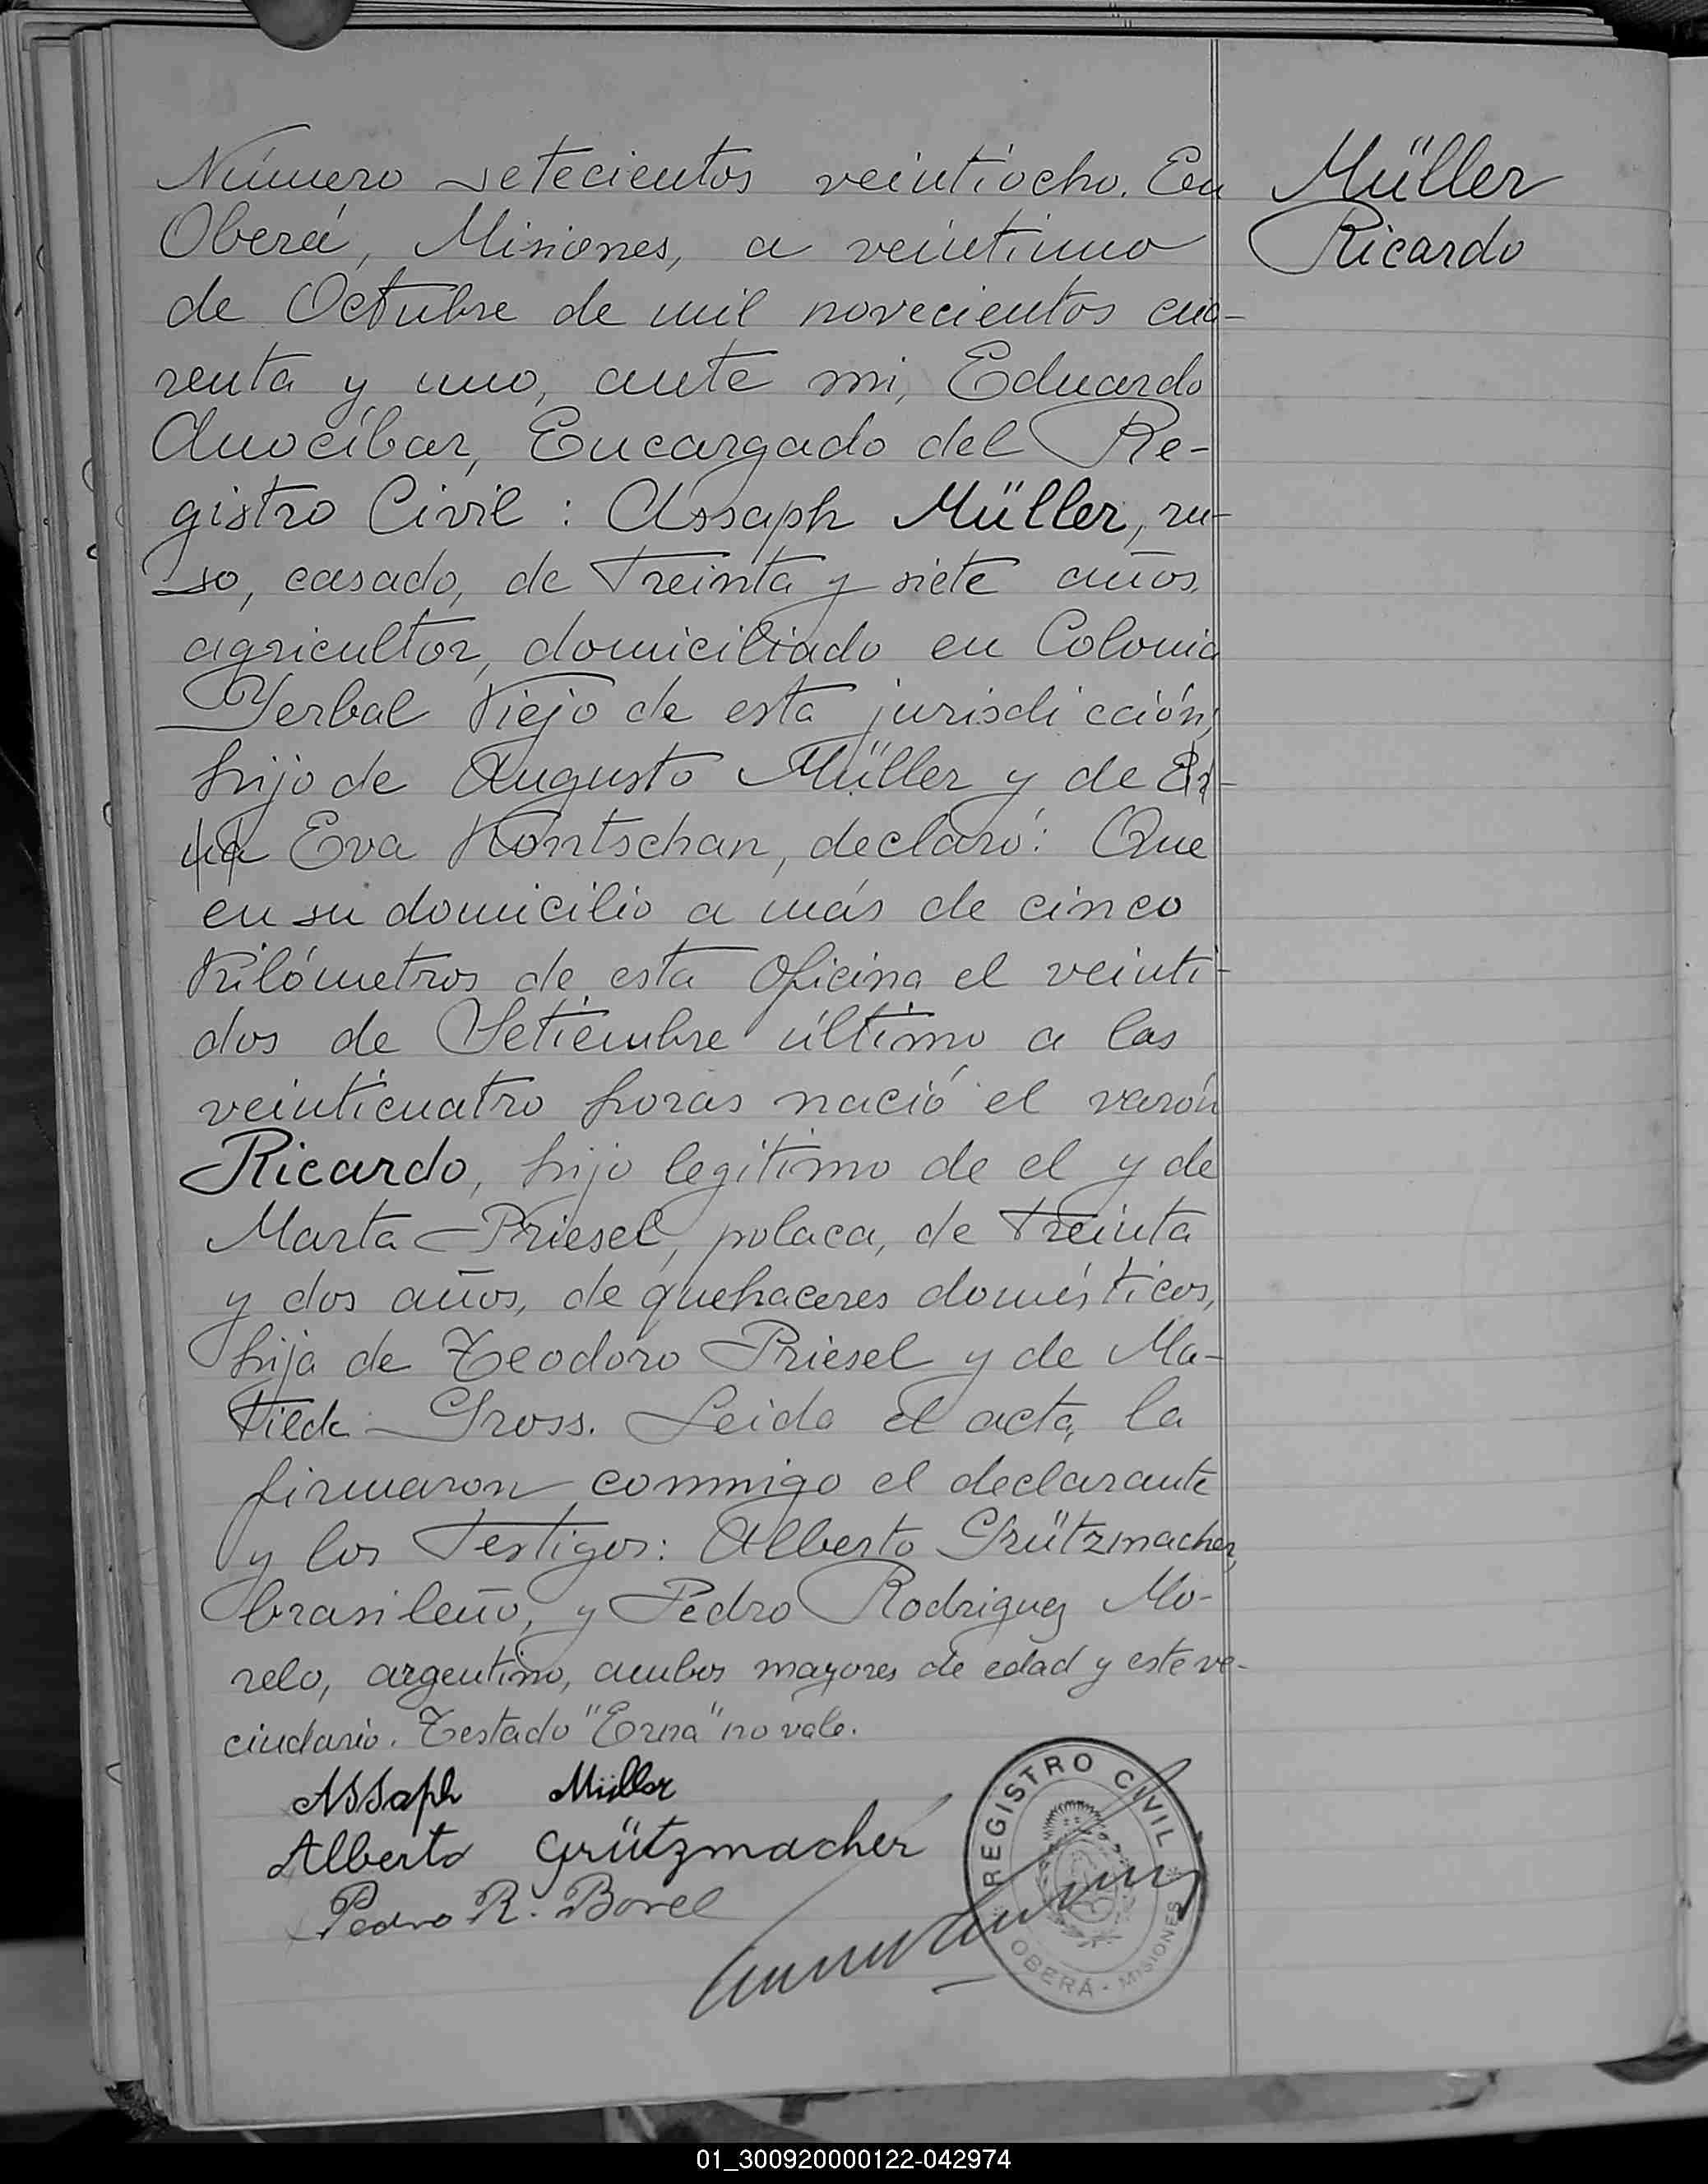 Número setecientos veintiocho. En
Oberá, Misiones, a veintiuno
de Octubre de mil novecientos cua-
renta y uno, ante mi, Eduardo
Anocíbar, Encargado del Re-
gistro Civil : Assaph Müller, ru-
so, casado, de treinta y siete años,
agricultor, domiciliado en Colonia
Yerbal Viejo de esta jurisdicción,
hijo de Augusto Müller y de Er-
na Eva Kontschan, declaró: Que
en su domicilio a más de cinco
kilómetros de esta Oficina el veinti-
dos de Setiembre último a las
veinticuatro horas nació el varón
Ricardo, hijo legítimo de el y de
Marta Priesel, polaca, de treinta
y dos años, de quehaceres domésticos,
hija de Teodoro Priesel y de Ma-
tilde Gross. Leida el acta, la
firmaron conmigo el declarante
y los testigos: Alberto Grützmacher,
brasileño, y Pedro Rodriguez Mo-
relo, argentino, ambos mayores de edad y este ve-
cindario. Testado "Erna" no vale.
Assaph Müller
Alberto Grützmacher
Pedro R. Borel
REGISTRO CIVIL
OBERÁ - MISIONES
Müller
Ricardo
01_300920000122-042974